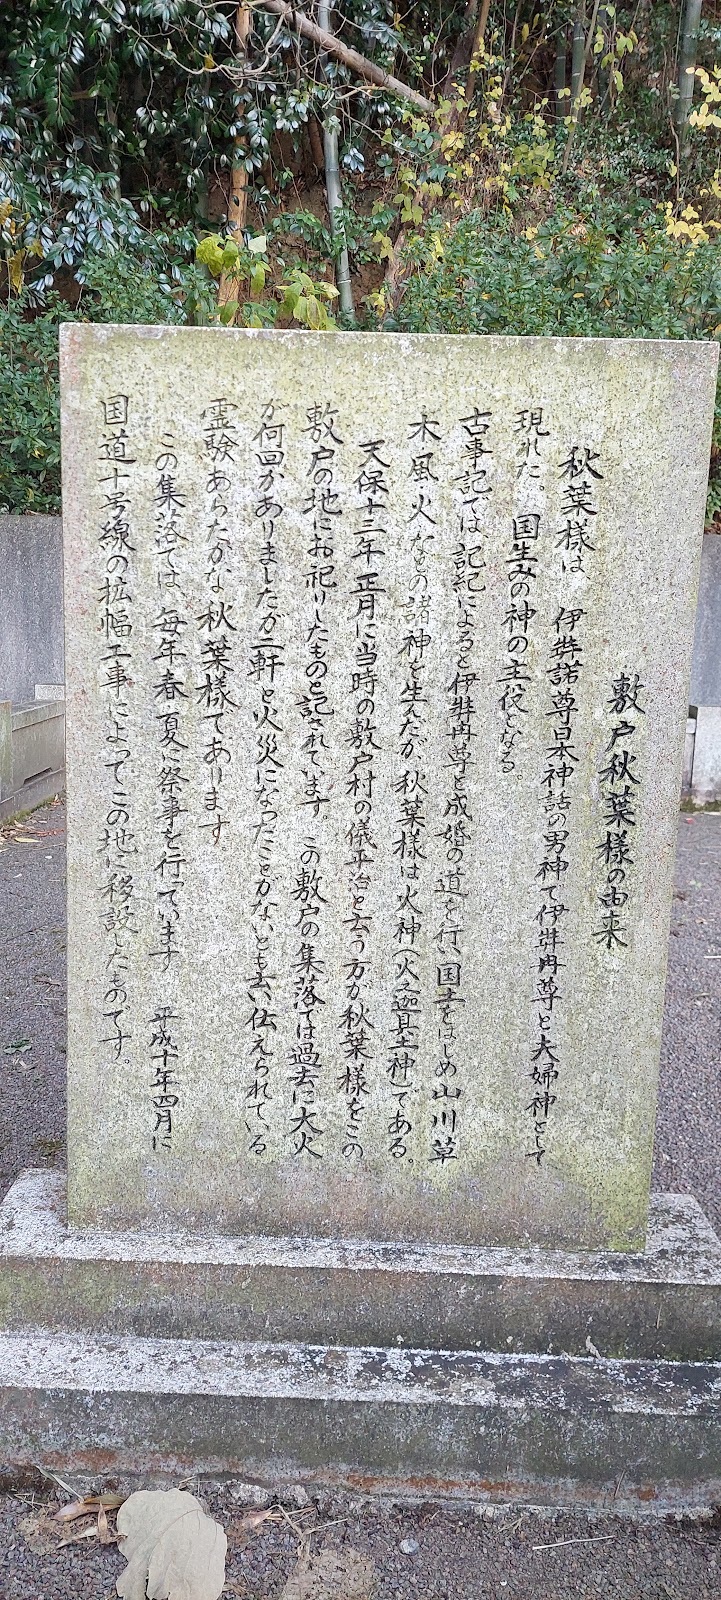 敷戸秋葉様の由来
秋葉様は、伊弉諾尊日本神話の男神で伊弉冉尊と夫婦神として
現れた。国生みの神の主役となる。
古事記では、記紀によると伊弉冉尊と成婚の道を行い、国土をはじめ山川草
木風火などの諸神を生んだが、秋葉様は火神(火之迦具土神)である。
天保十三年正月に当時の敷戸村の儀平治と云う方が秋葉様をこの
敷戸の地にお祀りしたものと記されています。この敷戸の集落では過去に大火
が何回かありましたが二軒と火災になったことがないとも云い伝えられている
霊験あらたかな秋葉様であります
この集落では、毎年春夏に祭事を行っています。平成十年四月に
国道十号線の拡幅工事によってこの地に移設したものです。